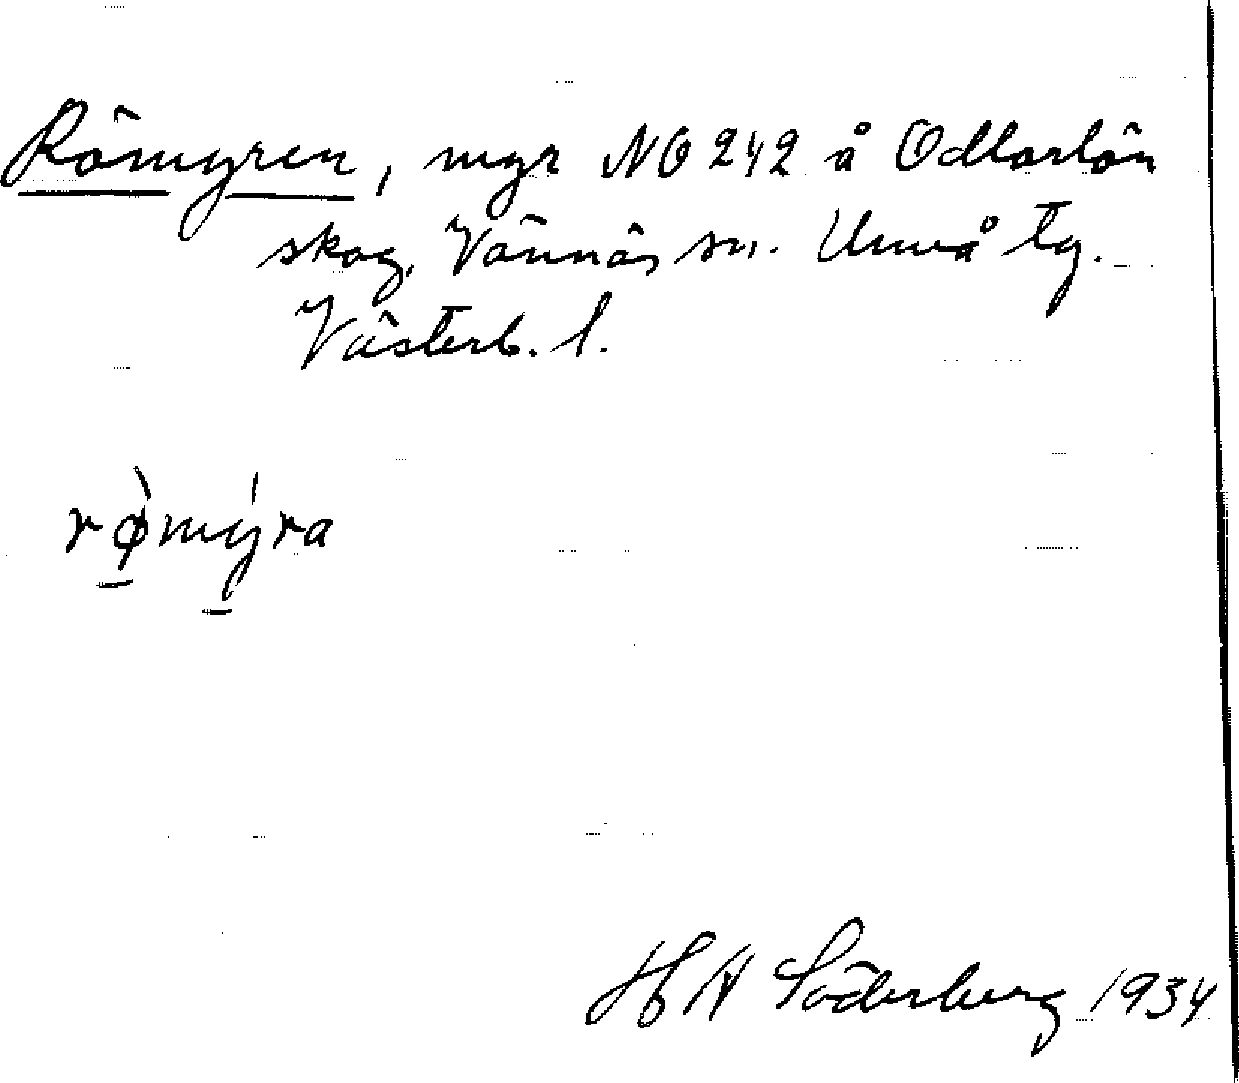 Römyren, myr NO 242 å Odlarlön
skog, Vännäs sn. Umeå tg.
Västerb. l.
rø̀mýra
H A Söderberg 1934